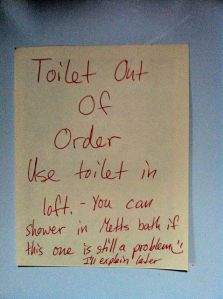 Toilet Out
Of
Order
Use toilet in
loft. - You can
shower in Metts bath if
this one is still a problem
I'll explain later